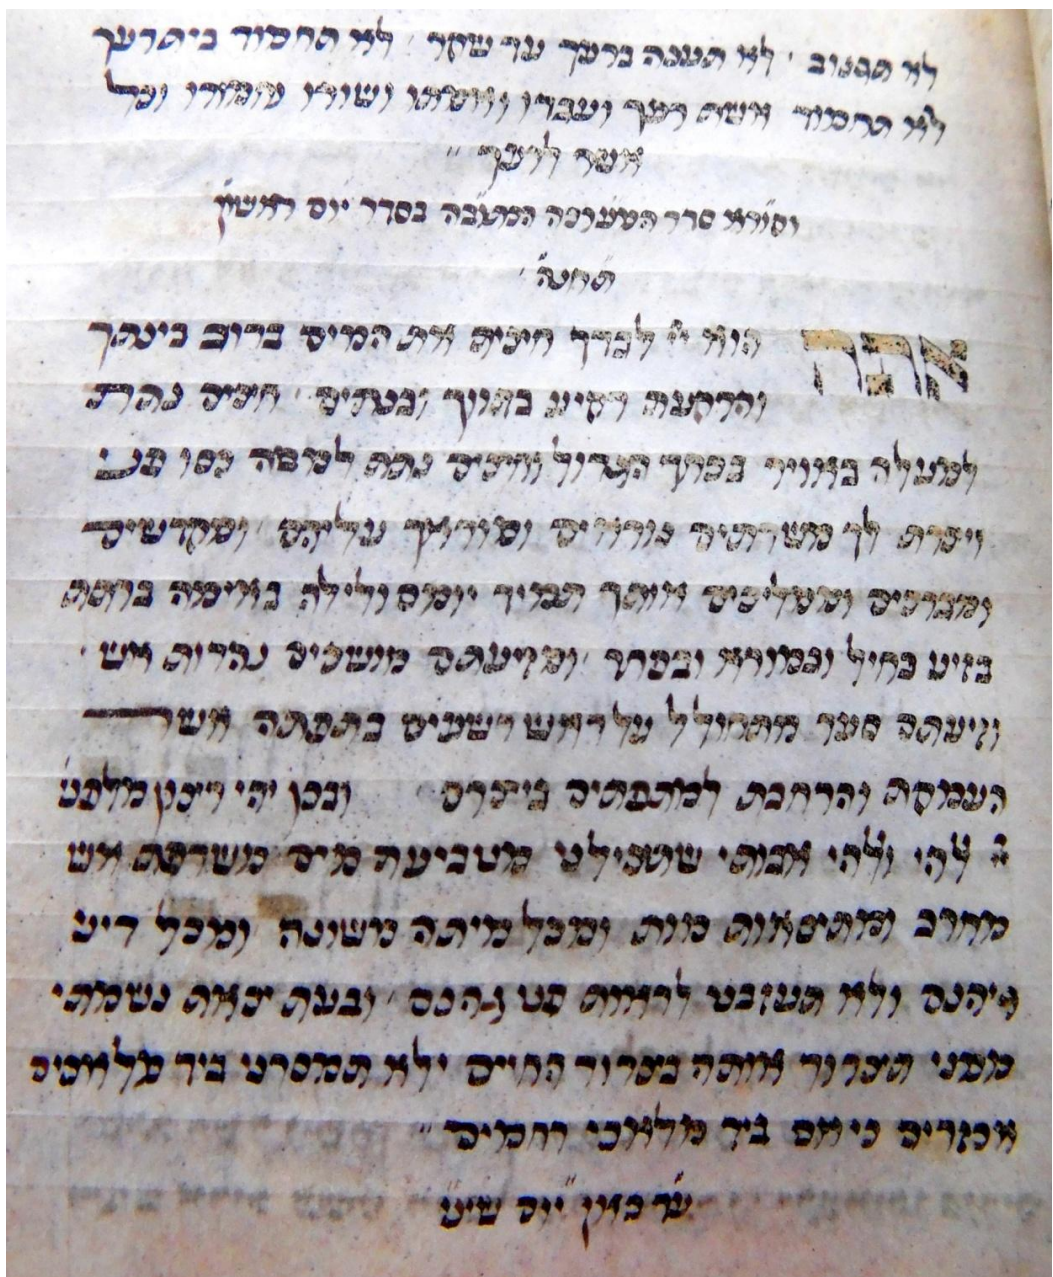 לא תגנוב · לא תענה ברעך עד שקר · לא תחמוד בית רעך
לא תחמוד אשת רעך ועבדו ואמתו ושורו וחמורו וכל
אשר לרעך
וקורא סדר המערכה הכתובה בסדר יום ראשון
תחנה
אתה הוא לבדך חכים את המים ברוב בינתך
והרקעת רקיע בתוך חמים נתת
למעלה באויר בכוחך הגדול ומים נתת למטה
ויצרת לך משרתים נוראים ומוראך עליהם ומקדשים
ומברכים וממליכים אותך תמיד יומם ולילה באימה ברתת
בזיע בחיל ובמורא ובפחד ומזיעתם מושכים נהרות אש
וזיעתם סער מתחולל על ראש רשעים בתפתה אשר
העמקת והרחבת למתפתים ביצרם ובכן יהי רצון מלפניך
אלהי ואלהי אבותי שתצילנו משביעת מים משרפת אש
מחרב ומתוצאות מות ומכל מיתה משונה ומכל דיני
גיהנם ולא תעזבנו לראות פני גהנם ובעת יציאת נשמתי
ממני תצרור אותה בצרור החיים ולא תמסרנו ביד מלאכים
אכזרים כי אם ביד מלאכי רחמים
עד כאן יום שני